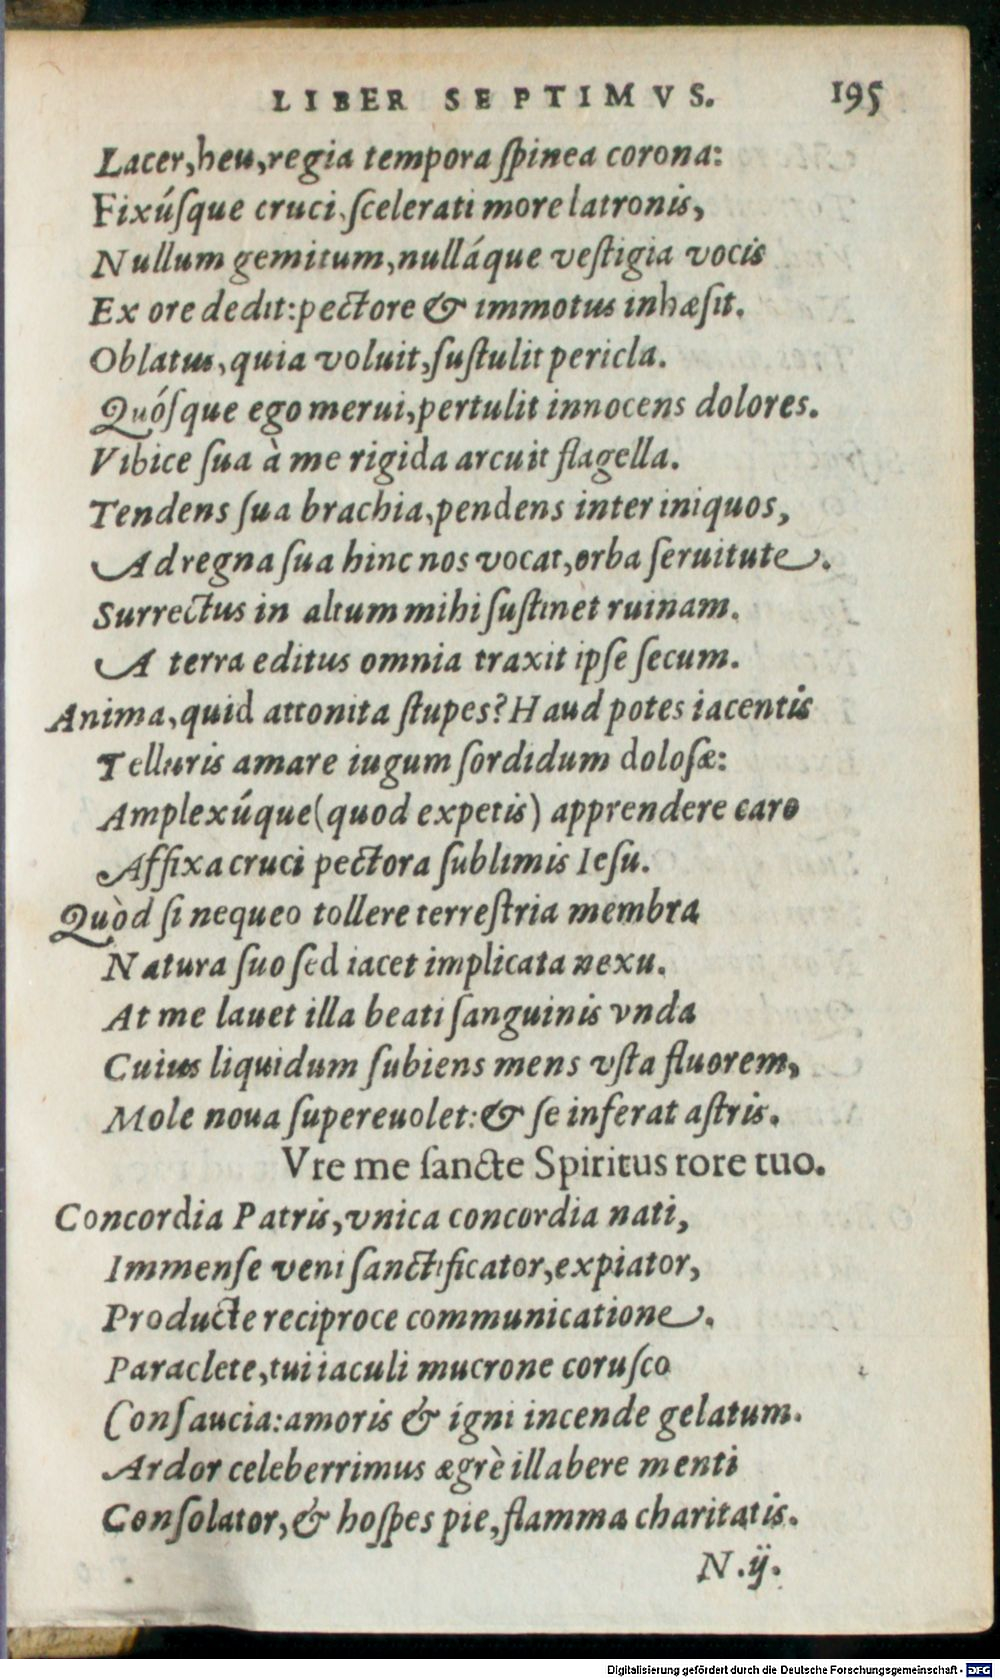 LIBER SEPTIMVS. 195
Lacer, heu, regia tempora ſpinea corona:
Fixúſque cruci, ſcelerati more latronis,
Nullum gemitum, nulláque veſtigia vocis
Ex ore dedit: pectore & immotus inhæſit.
Oblatus, quia voluit, ſuſtulit pericla.
Quóſque ego merui, pertulit innocens dolores.
Vibice ſua à me rigida arcuit flagella.
Tendens ſua brachia, pendens inter iniquos,
Ad regna ſua hinc nos vocat, orba ſeruitute.
Surrectus in altum mihi ſuſtinet ruinam.
A terra editus omnia traxit ipſe ſecum.
Anima, quid attonita ſtupes? Haud potes iacentis
Telluris amare iugum ſordidum doloſæ:
Amplexúque (quod expetis) apprendere caro
Affixa cruci pectora ſublimis Ieſu.
Quòd ſi nequeo tollere terreſtria membra
Natura ſuo ſed iacet implicata nexu.
At me lauet illa beati ſanguinis vnda
Cuius liquidum ſubiens mens vſta fluorem,
Mole noua ſupereuolet: & ſe inferat aſtris.
Vre me ſancte Spiritus rore tuo.
Concordia Patris, vnica concordia nati,
Immenſe veni ſanctificator, expiator,
Producte reciproce communicatione.
Paraclete, tui iaculi mucrone coruſco
Conſaucia: amoris & igni incende gelatum.
Ardor celeberrimus ægrè illabere menti
Conſolator, & hoſpes pie, flamma charitatis.
N.ij.
Digitalisierung gefördert durch die Deutsche Forschungsgemeinschaft - DFG